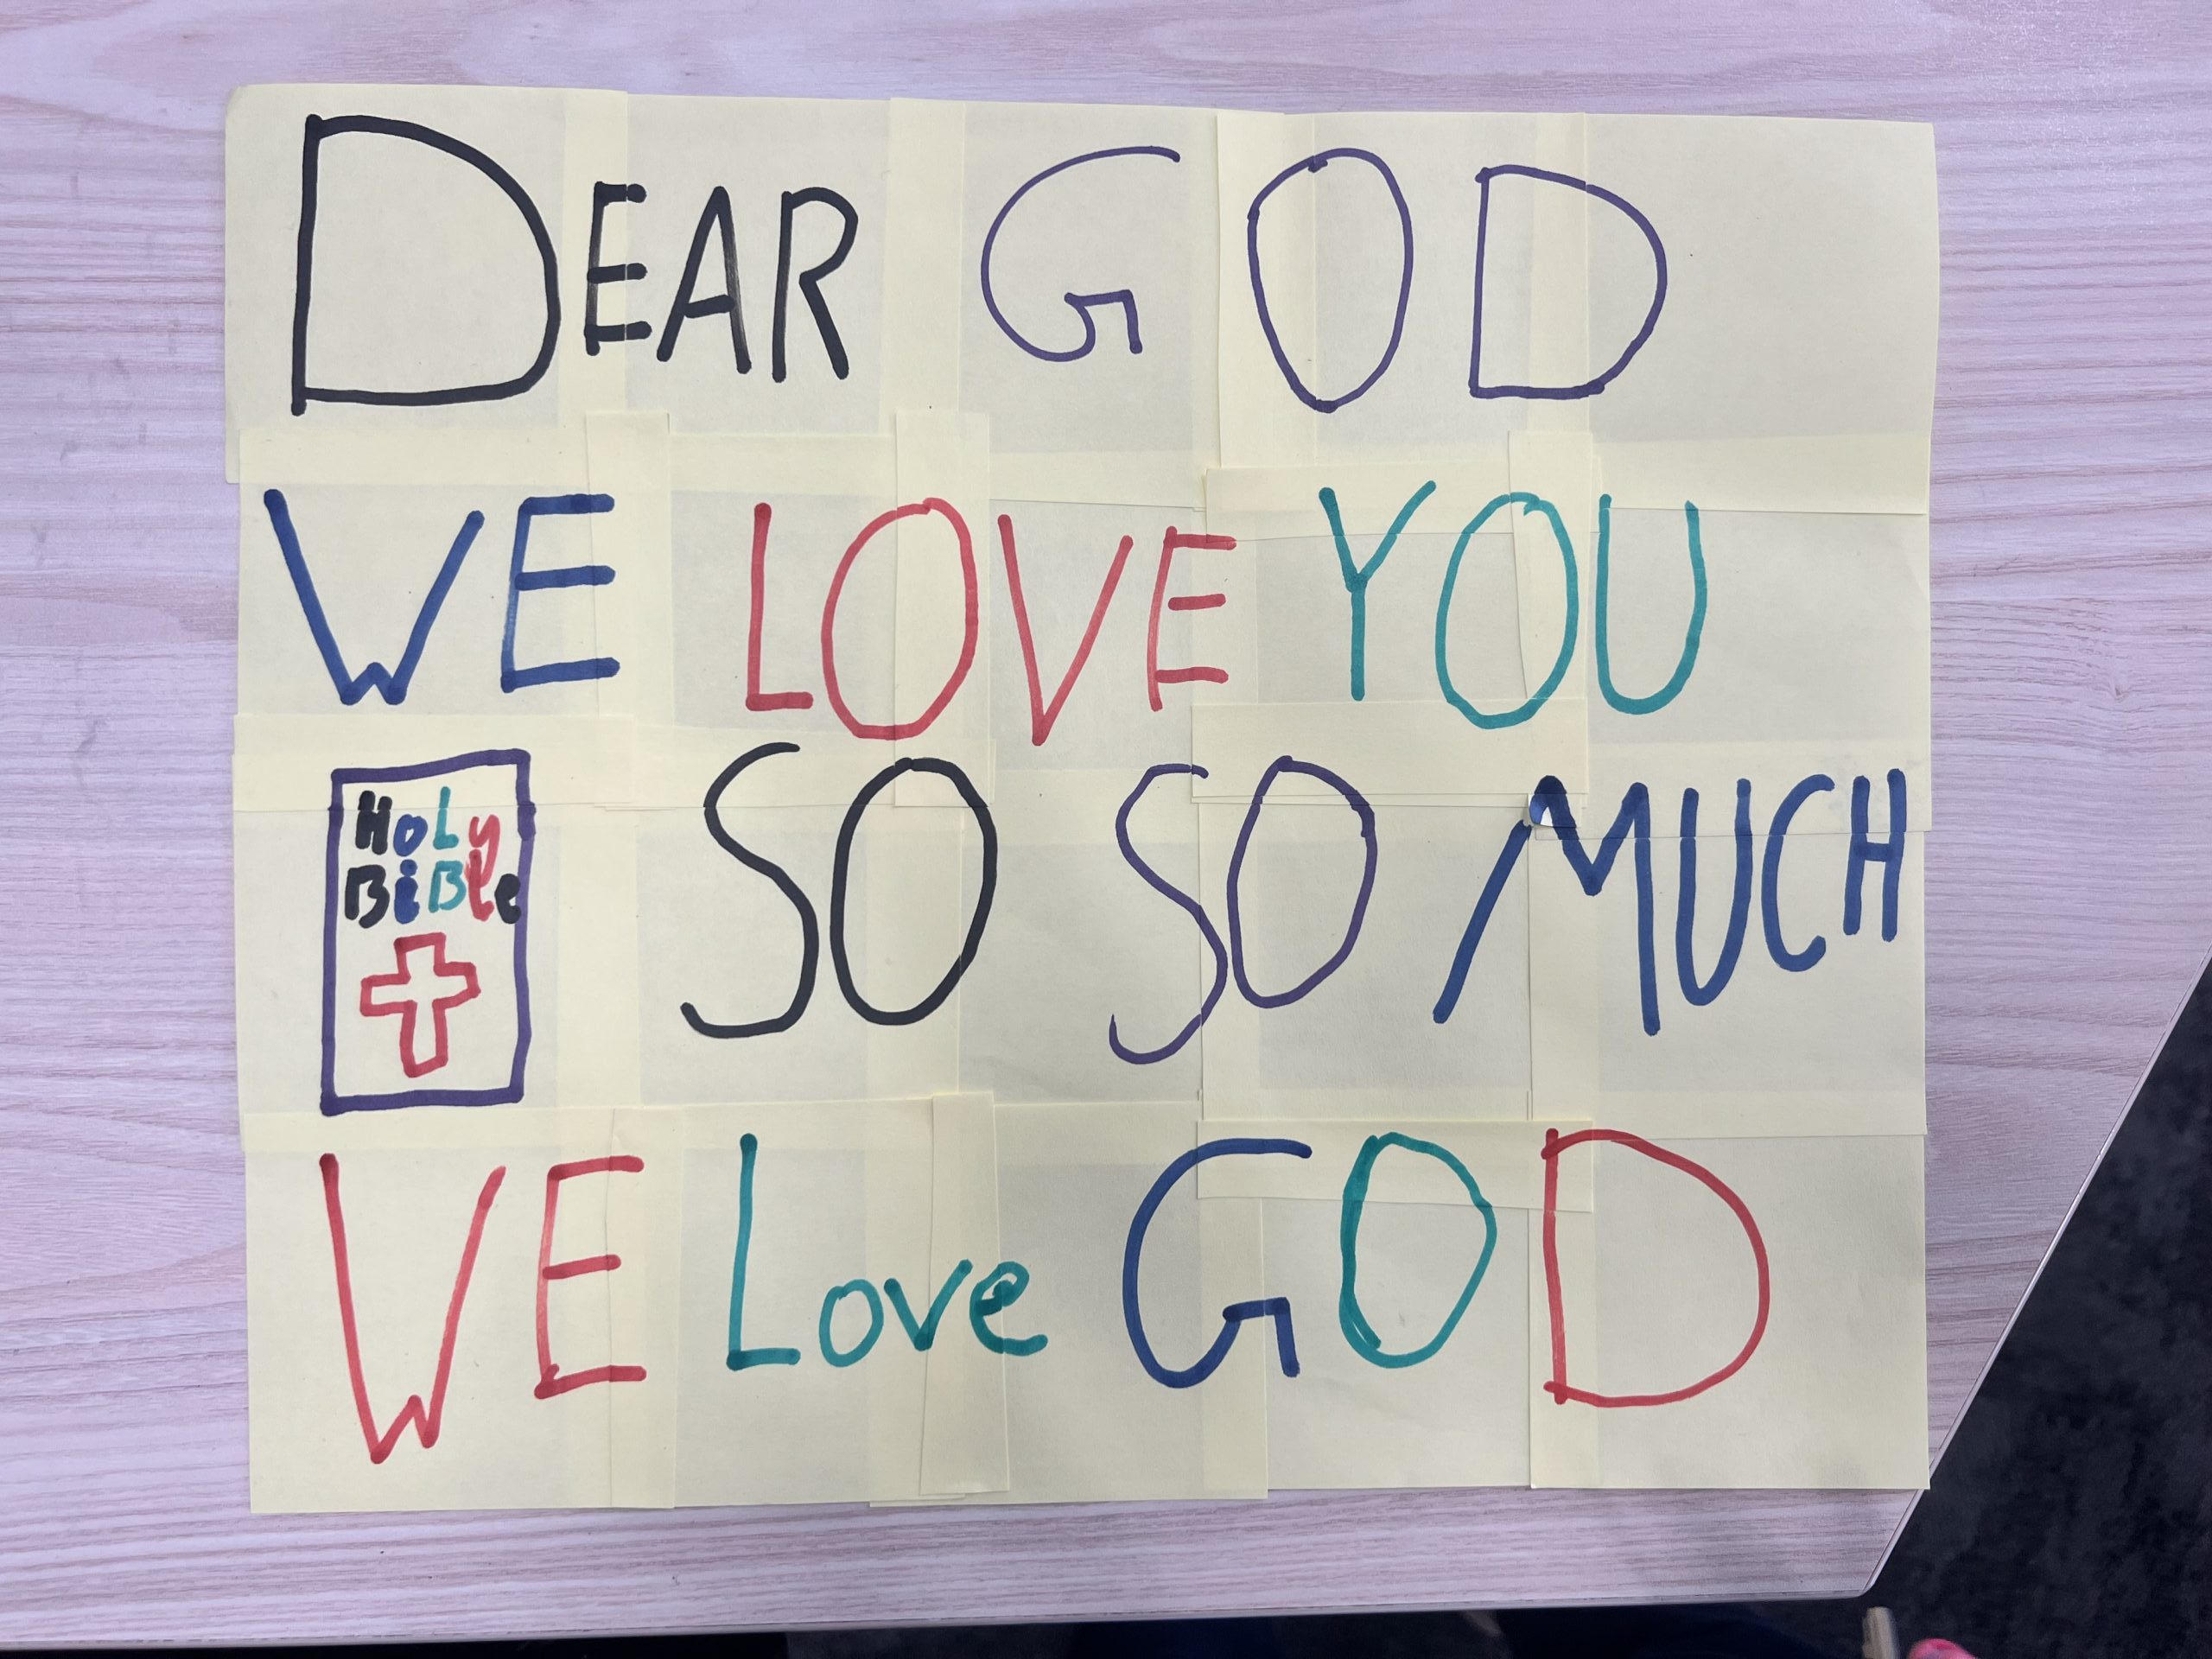 DEAR GOD
WE LOVE YOU
HoLy
BiBle
SO SO MUCH
WE Love GOD